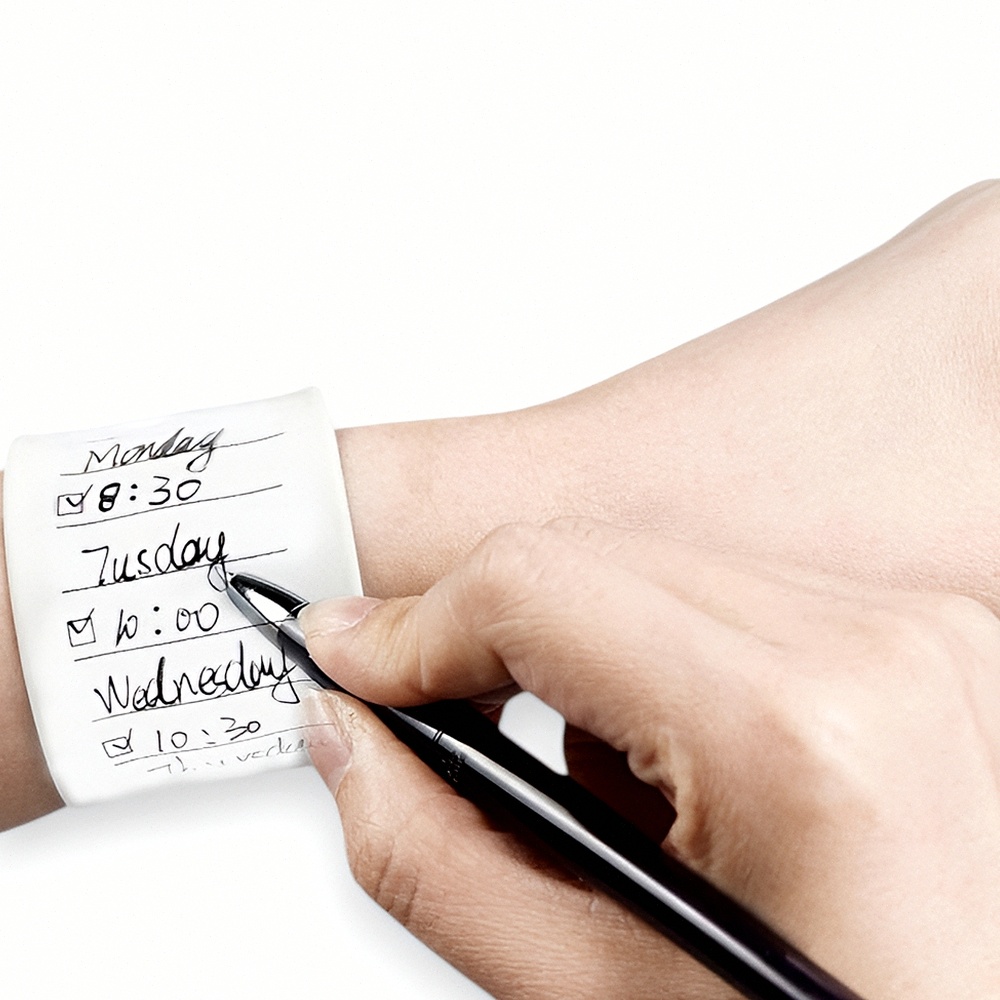 Monday
☑ 8:30
Tusday
☑ 10:00
Wednesday
☑ 10:30
Thursday